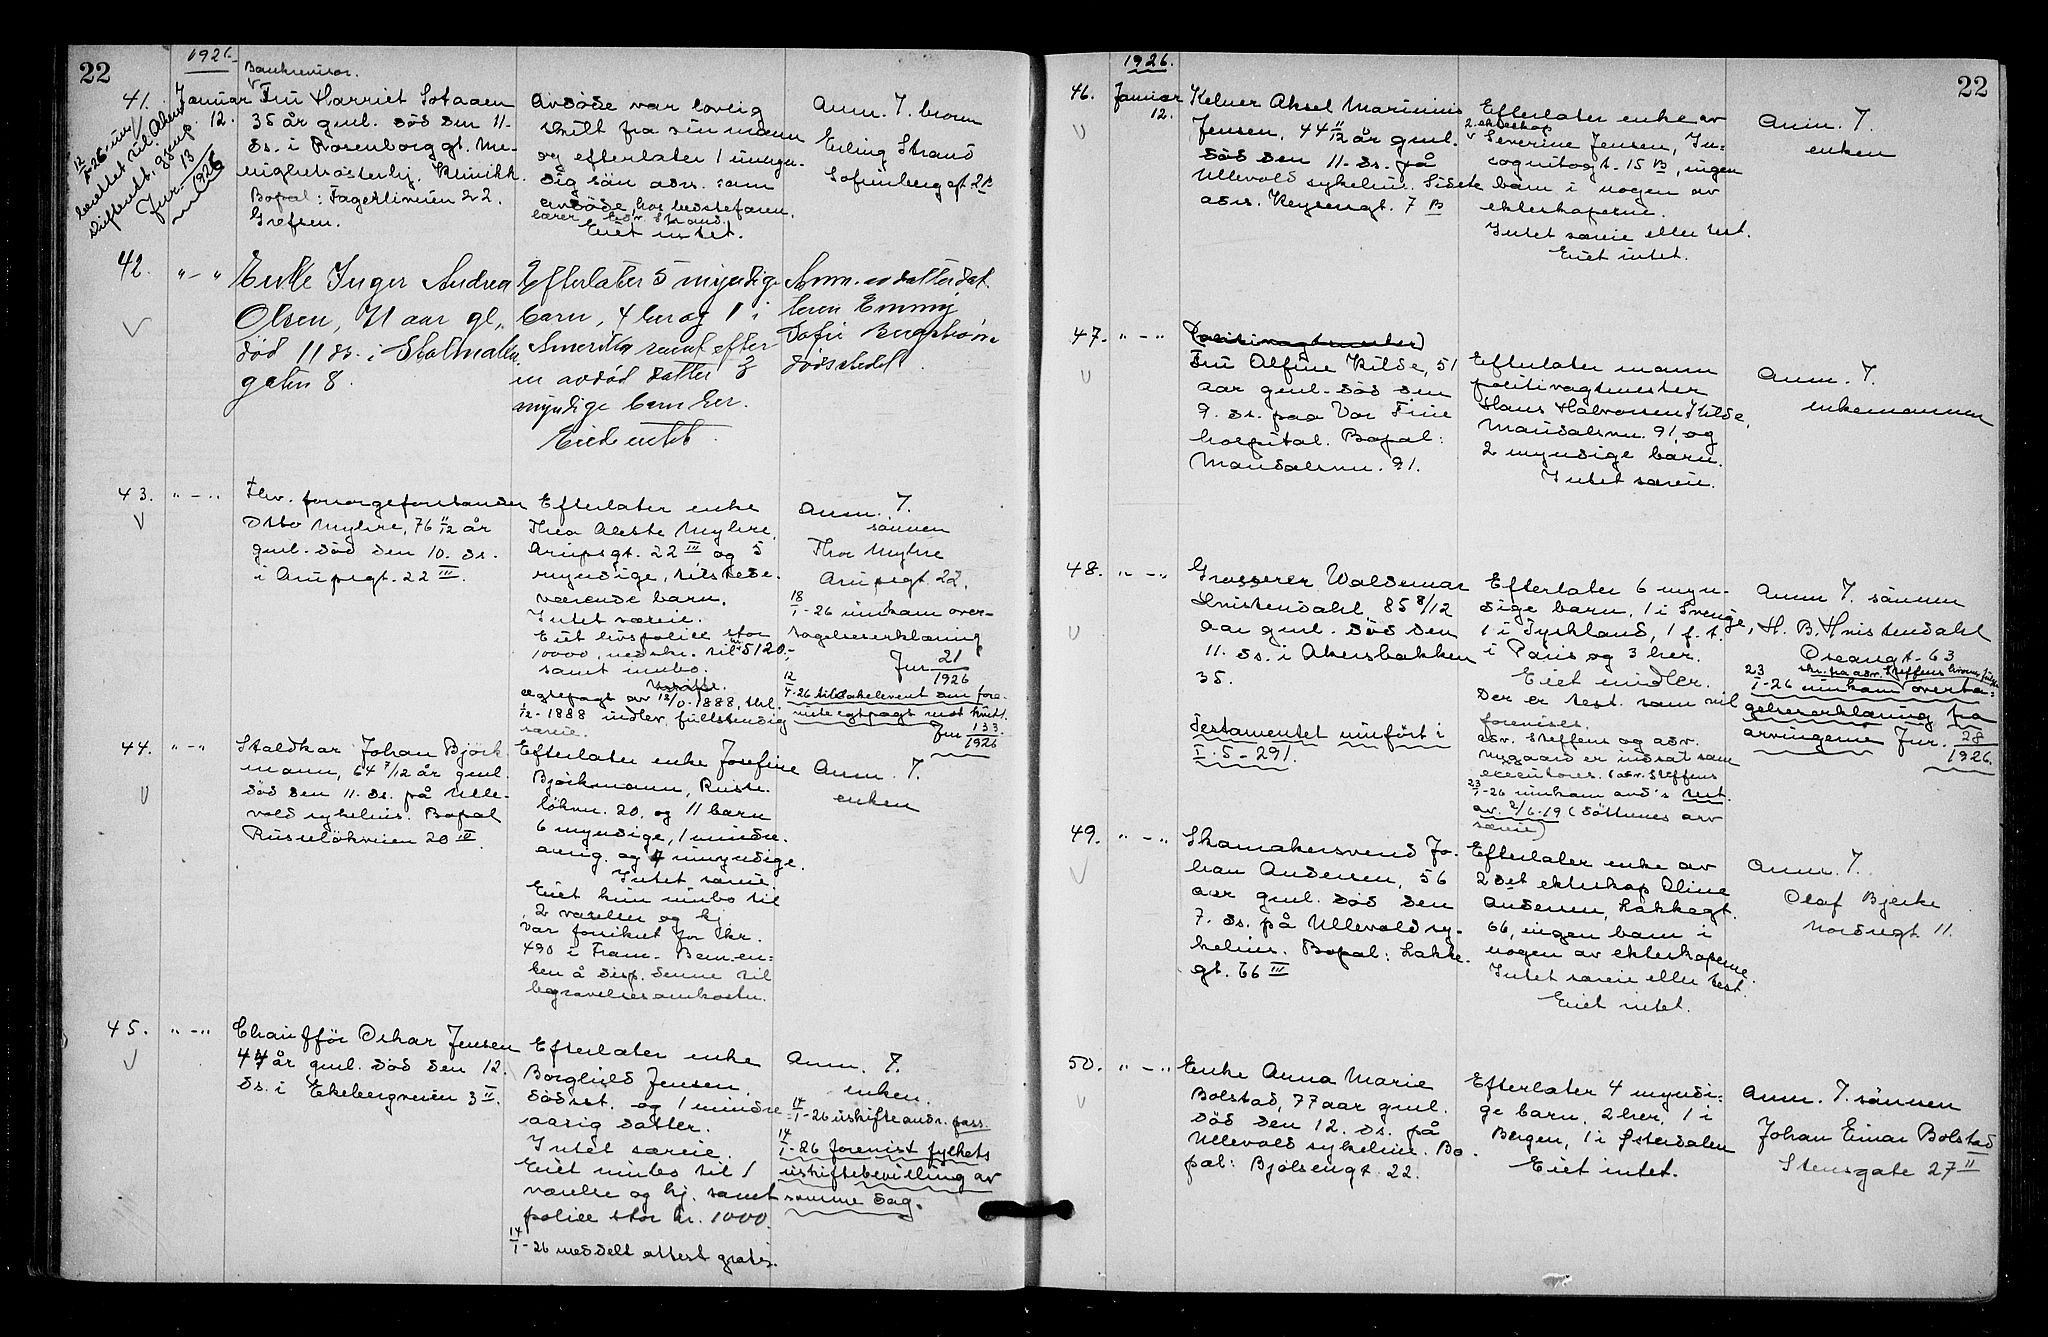 22
1926.
41.
Januar
12.
Bankrevisor.
Fru Harriet Sotaaen
35 år gml. död den 11.
ds. i Rosenborggt. Me-
nighetssösterhj. Klinikk.
Bopel: Fagerliveien 22.
Grefsen.
Avdöde var lovlig
skilt fra sin mann
og efterlater 1 umyn-
dig sön adr. som
avdöde, hos bedstefaren,
lærer Edv. Strand.
Eiet intet.
Anm. f. broren
Erling Strand
Sofienberggt. 21
12/1-26 um/
berettet til Aker
skifterett. gjenp.
Jur. 13
1926
42.
" - "
Enke Inger Andrea
Olsen, 71 aar gl.,
död 11 ds. i
gaten 8.
Efterlater 5 myndige
barn, 4 her og 1 i
Amerika samt efter
en avdöd datter 3
myndige barn her.
Eied intet.
Anm. av datterdat-
teren Emmy
Sofie Bergström
dödsstedet.
43.
" - "
Fhv. forsorgsforstander
Otto Myhre, 76 11/12 år
gml. död den 10. ds.
i Arupsgt. 22 III.
Efterlater enke
Thea Aleste Myhre,
Arupsgt. 22 III og 5
myndige, tilstede-
værende barn.
Intet særeie.
Eiet livspolice stor
10000, nedskr. til 5120.-,
samt innbo.
Uskifte.
egtepagt av 12/10-1888, thl.
1/12-1888 indlev. fullstendig
særeie.
Anm. f.
sönnen
Thor Myhre
Arupsgt. 22.
18/1-26 innkom over-
tagelseserklæring
Jur 21
1926
12/4-26 tilbakelevert den fore-
viste egtepagt mot kvitt.
Jur 133
1926
44.
" - "
Staldkar Johan Björk-
mann, 64 7/12 år gml.
död den 11. ds. på Ulle-
vold sykehus. Bopel
Ruselökveien 20 III.
Efterlater enke Josefine
Björkmann, Ruse-
lökvn. 20. og 11 barn
6 myndige, 1 mindre-
aarig. og 4 umyndige.
Intet særeie.
Eiet kun innbo til
2 værelser og kj.
Var forsikret for Kr.
490 i Fram. Bem. en-
ken å disp. denne til
begravelsesomkostn.
Anm. f.
enken
45.
" - "
Chaufför Oskar Jensen
44 år gml. död den 12.
ds. i Ekebergveien 3 II.
Efterlater enke
Borghild Jensen
dödsst. og 1 mindre-
aarig datter.
Intet særeie.
Eiet innbo til 1
værelse og kj. samt
police stor kr. 1000.
14/1-26 meddelt attest gratis.
Anm. f.
enken.
14/1-26 uskifteandr. pass.
14/1-26 forevist fylkets
uskiftebevilling av
samme dag.
1926.
22
46.
Januar
12.
Kelner Aksel Marinius
Jensen, 44 11/12 år gml.
död den 11. ds. på
Ullevold sykehus. Sidste
adr. Keysersgt. 7 B
Efterlater enke av
2. ekteskap
Severine Jensen, In-
cognitogt. 15 B, ingen
barn i nogen av
ekteskaperne.
Intet særeie eller test.
Eiet intet.
Anm. f.
enken
47.
" - "
(Politivagtmester)
Fru Alfine Kilde, 51
aar gml. död den
9. ds. paa Vor Frue
hospital. Bopel:
Maridalsvn. 91.
Efterlater mann
politivagtmester
Hans Halvorsen Kilde,
Maridalsvn. 91, og
2 myndige barn.
Intet særeie.
Anm. f.
enkemannen
48.
" - "
Grosserer Waldemar
Hvistendahl 85 8/12
aar gml. död den
11. ds. i Akersbakken
35.
Testamentet innfört i
I - 5 - 291.
Efterlater 6 myn-
dige barn, 1 i Sverige,
1 i Tyskland, 1 f. t.
i Paris og 3 her.
Eiet midler.
Der er test. som vil
forevises.
adv. Steffens og adv.
Nygaard er indsat som
executores. (adv. Steffens
23/1-26 innkom avd's test.
av. 2/6-19 (döttrenes arv
særeie)
Anm f. sönnen
H. B. Hvistendahl
Oscarsgt. 63
23/1-26 innkom overta-
gelseserklæring fra
arvingerne Jur. 28
1926.
49.
" - "
Skomakersvend Jo-
han Andersen, 56
aar gml. död den
7. ds. på Ullevold sy-
kehus. Bopel: Lakke-
gt. 66 III
Efterlater enke av
2det ekteskap Oline
Andersen, Lakkegt.
66, ingen barn i
nogen av ekteskaperne.
Intet særeie eller test.
Eiet intet.
Anm. f.
Olaf Bjerke
Nordregt 11.
50.
" - "
Enke Anna Marie
Bolstad, 77 aar gml.
död den 12. ds. på
Ullevold sykehus. Bo-
pel: Bjölsengt. 22.
Efterlater 4 myndi-
ge barn, 2 her, 1 i
Bergen, 1 i Österdalen
Eiet intet.
Anm. f. sönnen
Johan Einar Bolstad
Stensgate 27 II